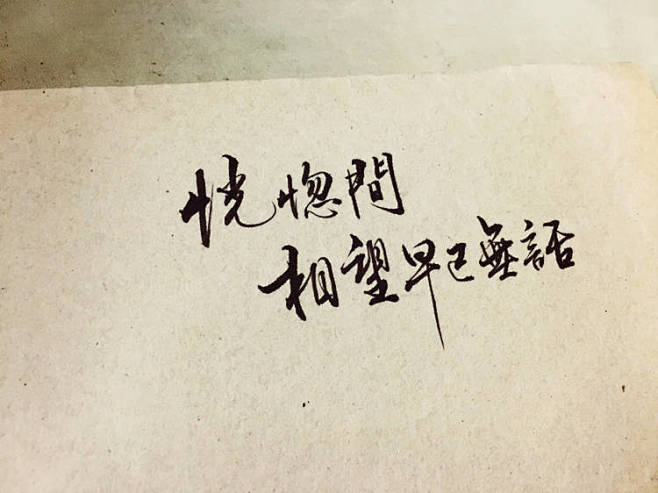 恍惚間
相望早已無話